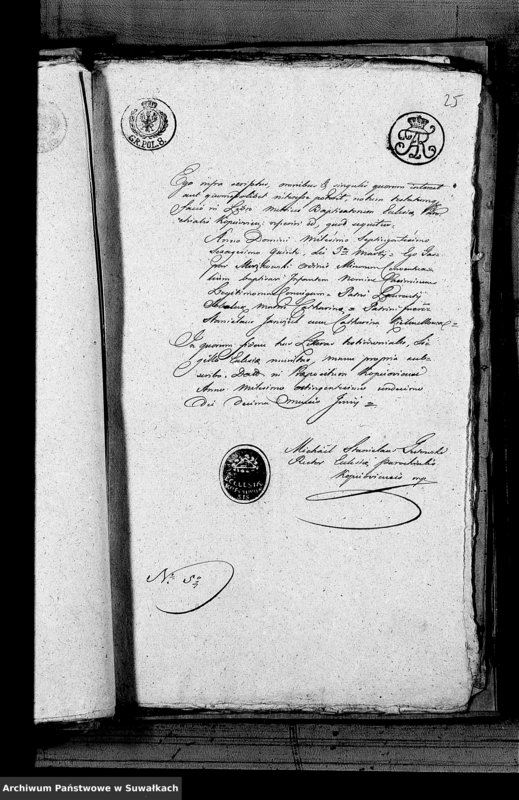 25
GR.POL.8.
AR
Ego infra scriptus, omnibus & singulis quorum interest
aut quomodolibet interesse poterit, notum testatumq
facio in Libro Metrices Baptisatorum Eclesiæ Paro
chialis Kopcioviensis reperiri id, quod sequitur.
Anno Domini Milesimo Septingentesimo
Sexagesimo Quinto, Dei 3tia Martij. Ego
Ordinis Minorum Conventua
lium baptisavi Infantem Nomine Casimirum
Legitimorum Conjugum Patris Laurentij
Matris Catharina, Patrini fuere
Stanislaus cum Catharina
In quorum fidem has Literas testimoniales, Si
gillo Eclesiæ munitas, manu propria sub
scribo. Datt in Kopcioviensi
Anno Milesimo octingentesimo undecimo
Dei Decima Mensis Junij
Michaël Stanislaus
Rector Eclesiæ parochialis
Kopcioviensis mp
ECCLESIÆ
No 5
Archiwum Państwowe w Suwałkach